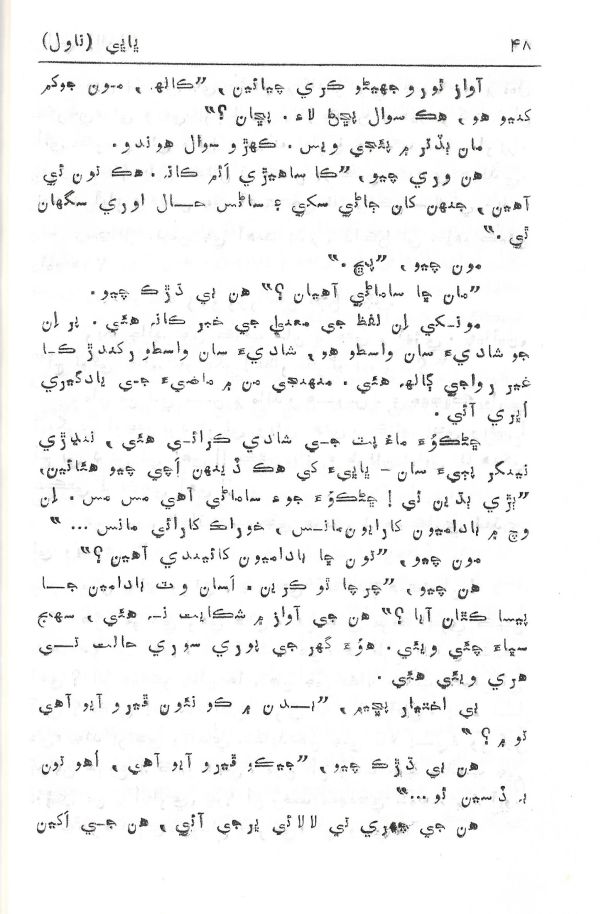 ۴۸ پاپي (ناول)
آواز ٿورو جهيڻو ڪري چيائين، ”ڪالهہ، مون جوڪم
کنيو هو، هڪ سوال پڇڻ لاءِ. پڇان؟“
مان ٻڏتر ۾ پئجي ويس. ڪهڙو سوال هوندو.
هن وري چيو، ”ڪا ساهيڙي اٿم ڪانہ. هڪ تون ئي
آهين، جنهن کان ڄاڻي سگهي ۽ ساڻس حال اوري سگهان
ٿي.“
مون چيو، ”پڇ.“
”مان ڇا ساماڻي آهيان؟“ هن بي ڌڙڪ چيو.
مونکي اِن لفظ جي معنيٰ جي خبر ڪانہ هئي. پر اِن
جو شاديءَ سان واسطو هو، شاديءَ سان واسطو رکندڙ ڪا
غير رواجي ڳالهہ هئي. منهنجي من ۾ ماضيءَ جي يادگيري
اُڀري آئي.
ڇڻڪوءَ ماءُ پٽ جي شادي ڪرائي هئي، ننڍڙي
نينگر ٻپيءَ سان - پاپيءَ کي هڪ ڏينهن اچي چيو هئائين،
”ٻڙي ٻڌين ٿي! ڇڻڪوءَ جوءِ ساماڻي آهي مس مس. اِن
وچ ۾ بادامیون کارايون‌مانس، خوراڪ کارائي مانس...“
مون چيو، ”تون ڇا بادامیون کائيندي آهين؟“
هن چيو، ”چرچا ٿو ڪرين. اسان وٽ بادامين جا
پيسا ڪٿان آيا؟“ هن جي آواز ۾ شڪايت نہ هئي، سهج
سڀاءُ چئي ويئي. هوءَ گهر جي پوري سوري حالت تي
هري ويئي هئي.
بي اختيار پڇيم، ”بدن ۾ ڪو نئون ڦيرو آيو آهي
تو ۾؟“
هن بي ڌڙڪ چيو، ”جيڪو ڦيرو آيو آهي، اُهو تون
بہ ڏسين ٿو...“
هن جي چهري تي لالائي ڀرجي آئي، هن جي اکين